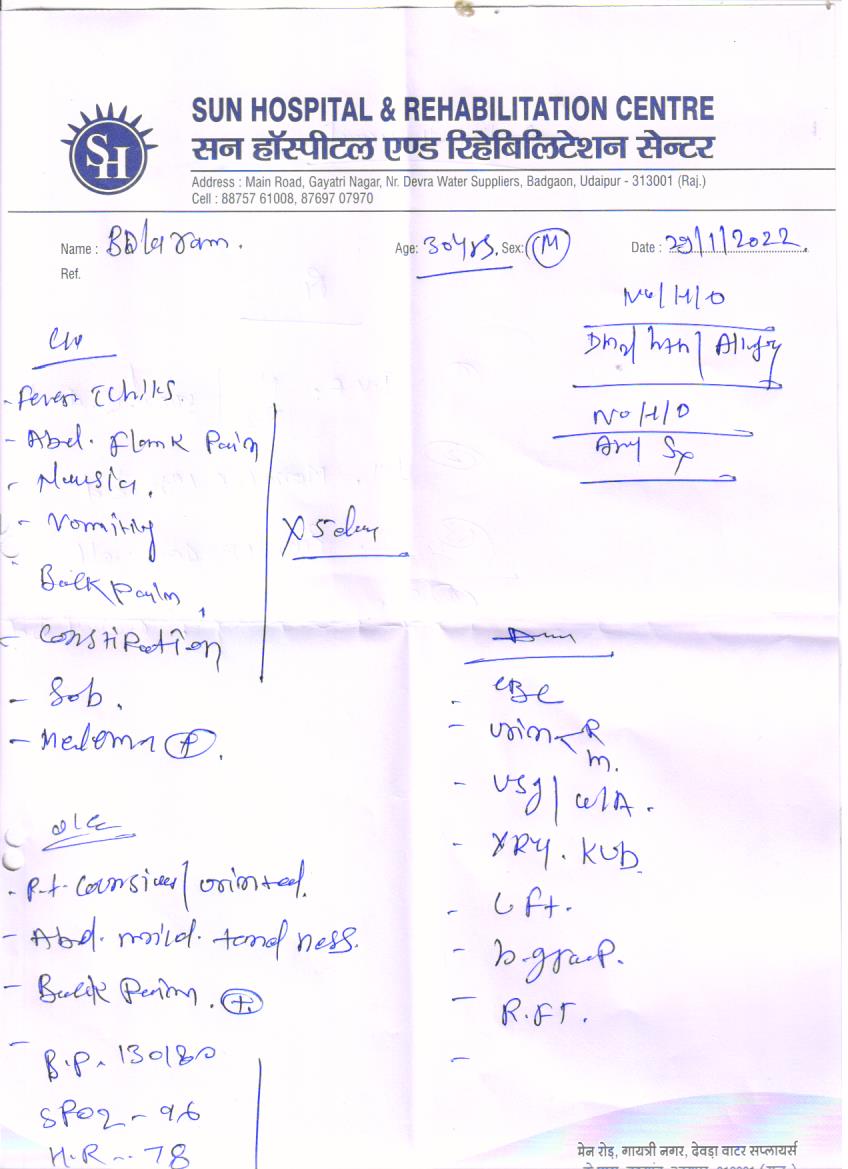 SH
SUN HOSPITAL & REHABILITATION CENTRE
सन हॉस्पीटल एण्ड रिहेबिलिटेशन सेन्टर
Address : Main Road, Gayatri Nagar, Nr. Devra Water Suppliers, Badgaon, Udaipur - 313001 (Raj.)
Cell : 88757 61008, 87697 07970
Name : Age: 30 Yrs. Sex: M Date : 29/1/2022
Ref.
No/H/O
No/H/O
Any Sx
- Fever
- Abd. Flank Pain
- Vomiting
X 5 day
Back Pain
- Constipation
- Sob.
CBC
- Urin R
m.
- USG
- XRY. KUB
- Lft.
- b. group.
- R.FT.
-
O/E
- P.t. oriented.
- Abd. mild. tend ness.
- Back Pain. +
- B.P. 130/80
SPO2 - 96
H.R - 78
मेन रोड़, गायत्री नगर, देवड़ा वाटर सप्लायर्स